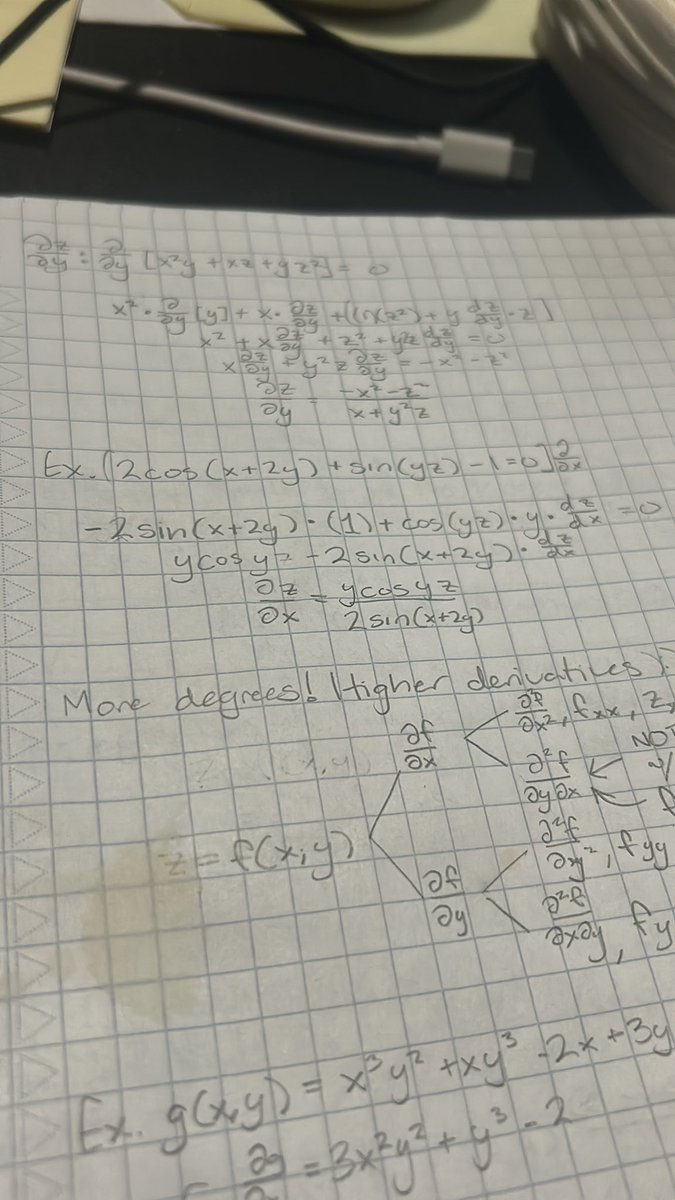 ∂z/∂y : ∂/∂y [x²y + xz + yz²] = 0
x² · ∂/∂y [y] + x · ∂z/∂y + ((1)(z²) + y dz/∂y · z]
x² + x ∂z/∂y + z² + y²z dz/∂y = 0
x ∂z/∂y + y²z ∂z/∂y = -x² - z²
∂z/∂y = -x² - z²/x + y²z
Ex. [2cos(x+2y) + sin(yz) - 1 = 0] ∂/∂x
-2sin(x+2y) · (1) + cos(yz) · y · dz/dx = 0
ycosyz - 2sin(x+2y) · dz/dx
∂z/∂x = ycosyz/2sin(x+2y)
More degrees! (Higher derivatives):
∂f/∂x
∂²f/∂x², fxx, z
∂²f/∂y∂x
z = f(x,y)
∂f/∂y
∂²f/∂y², fyy
∂²f/∂x∂y, fy
Ex. g(x,y) = x³y² + xy³ - 2x + 3y
= 3x²y² + y³ - 2